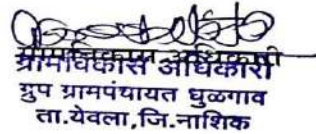 ग्रामविकास अधिकारी
ग्रुप ग्रामपंचायत धुळगाव
ता.येवला,जि.नाशिक